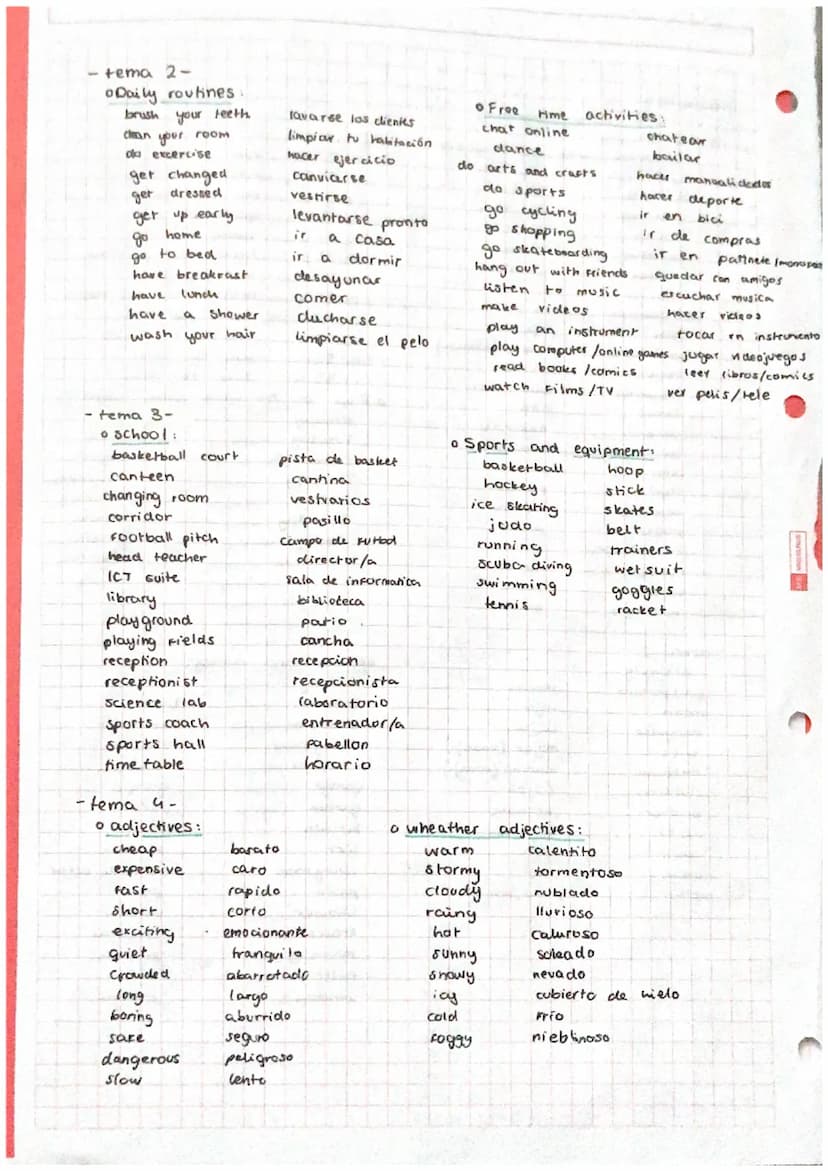 - tema 2 -
o Daily routines:
brush your teeth lavarse los dientes
clean your room limpiar tu habitación
do excercise hacer ejercicio
get changed canviarse
get dressed vestirse
get up early levantarse pronto
go home ir a casa
go to bed ir a dormir
have breakfast desayunar
have lunch comer
have a shower ducharse
wash your hair limpiarse el pelo
o Free time activities:
chat online chatear
dance bailar
do arts and crafts hacer manualidades
do sports hacer deporte
go cycling ir en bici
go shopping ir de compras
go skateboarding ir en patinete /monopatin
hang out with friends quedar con amigos
listen to music escuchar musica
make videos hacer videos
play an instrument tocar un instrumento
play computer /online games jugar videojuegos
read books /comics leer libros/comics
watch films /TV ver pelis/tele
- tema 3 -
o school:
basketball court pista de basket
canteen cantina
changing room vestvarios
corridor pasillo
football pitch campo de futbol
head teacher director/a
ICT suite sala de informatica
library biblioteca
playground patio
playing fields cancha
reception recepcion
receptionist recepcionista
science lab laboratorio
sports coach entrenador/a
sports hall pabellon
time table horario
o Sports and equipment:
basketball hoop
hockey stick
ice skating skates
judo belt
running trainers
scuba diving wet suit
swimming goggles
tennis racket
- tema 4 -
o adjectives:
cheap barato
expensive caro
fast rapido
short corto
exciting emocionante
quiet tranquilo
crowded abarrotado
long largo
boring aburrido
safe seguro
dangerous peligroso
slow lento
o wheather adjectives:
warm calentito
stormy tormentoso
cloudy nublado
rainy lluvioso
hot caluroso
sunny soleado
snowy nevado
icy cubierto de hielo
cold frío
foggy nieblinoso